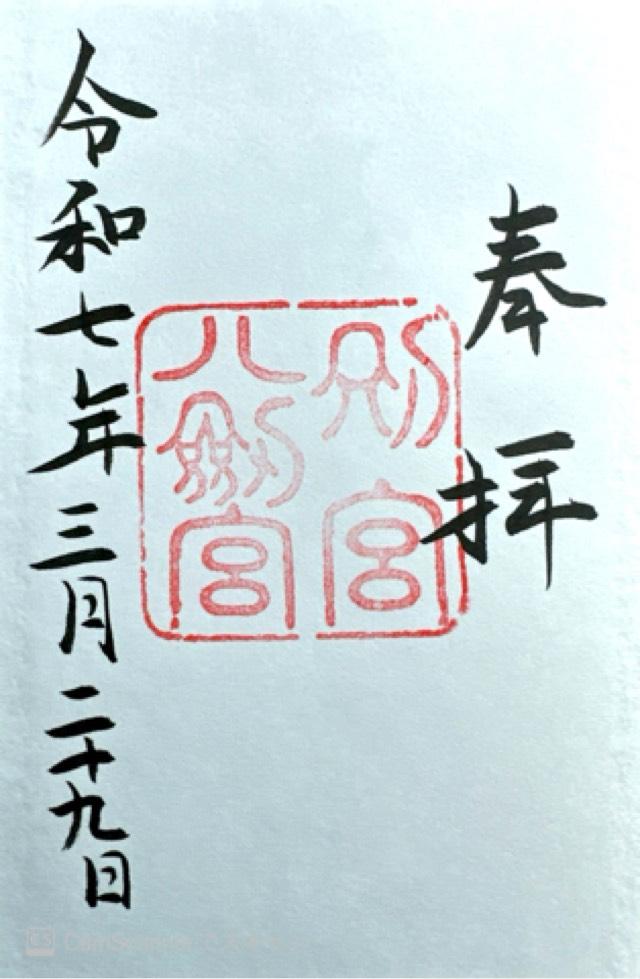 奉拝
別宮
八剣宮
令和七年三月二十九日